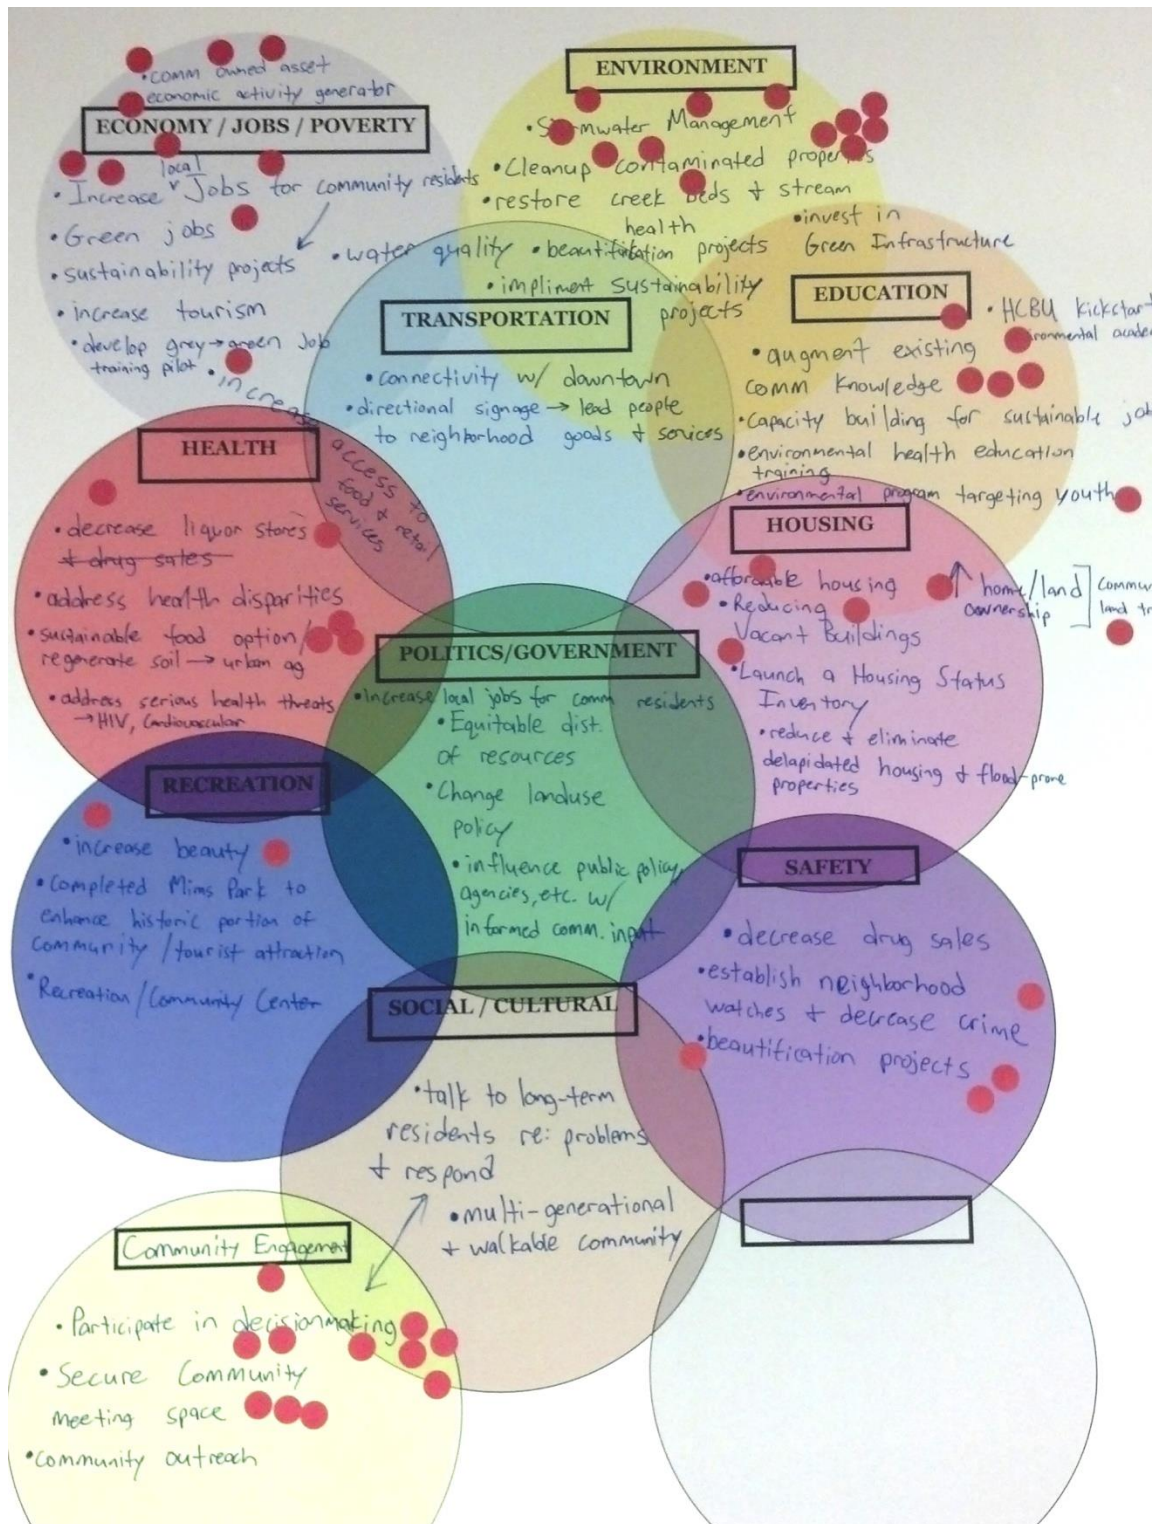 •comm owned asset
economic activity generator
ECONOMY / JOBS / POVERTY
local
•Increase ˅ Jobs for community residents
•Green jobs
•sustainability projects
•increase tourism
•develop grey→green Job
training pilot
•increase access to
food & retail
services
ENVIRONMENT
•Stormwater Management
•Cleanup contaminated properties
•restore creek beds & stream
health
•invest in
Green Infrastructure
•water quality
•beautification projects
•impliment sustainability
projects
TRANSPORTATION
•connectivity w/ downtown
•directional signage → lead people
to neighborhood goods & services
EDUCATION
•HCBU Kickstar
ironmental acade
•augment existing
comm knowledge
•capacity building for sustainable jo
•environmental health education
training
•environmental program targeting youth
HEALTH
•decrease liquor stores
& drug sales
•address health disparities
•sustainable food option/
regenerate soil → urban ag
•address serious health threats
→HIV, Cardiovascular
HOUSING
•affordable housing
↑ home/land
ownership
commu
land tr
•Reducing
Vacant Buildings
•Launch a Housing Status
Inventory
•reduce & eliminate
delapidated housing & flood-prone
properties
POLITICS/GOVERNMENT
•Increase local jobs for comm residents
•Equitable dist.
of resources
•Change landuse
policy
•influence public policy,
agencies, etc. w/
informed comm. input
RECREATION
•increase beauty
•Completed Mims Park to
enhance historic portion of
community / tourist attraction
•Recreation/Community Center
SAFETY
•decrease drug sales
•establish neighborhood
watches & decrease crime
•beautification projects
SOCIAL / CULTURAL
•talk to long-term
residents re: problems
& respond
•multi-generational
& walkable community
Community Engagement
•Participate in decisionmaking
•Secure Community
meeting space
•community outreach